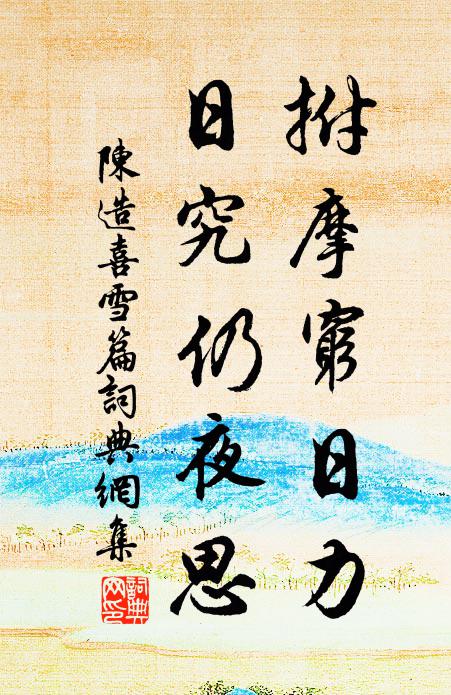 拊摩窮日力
日究仍夜思
陳造喜雪篇詞典網集
詞典網印